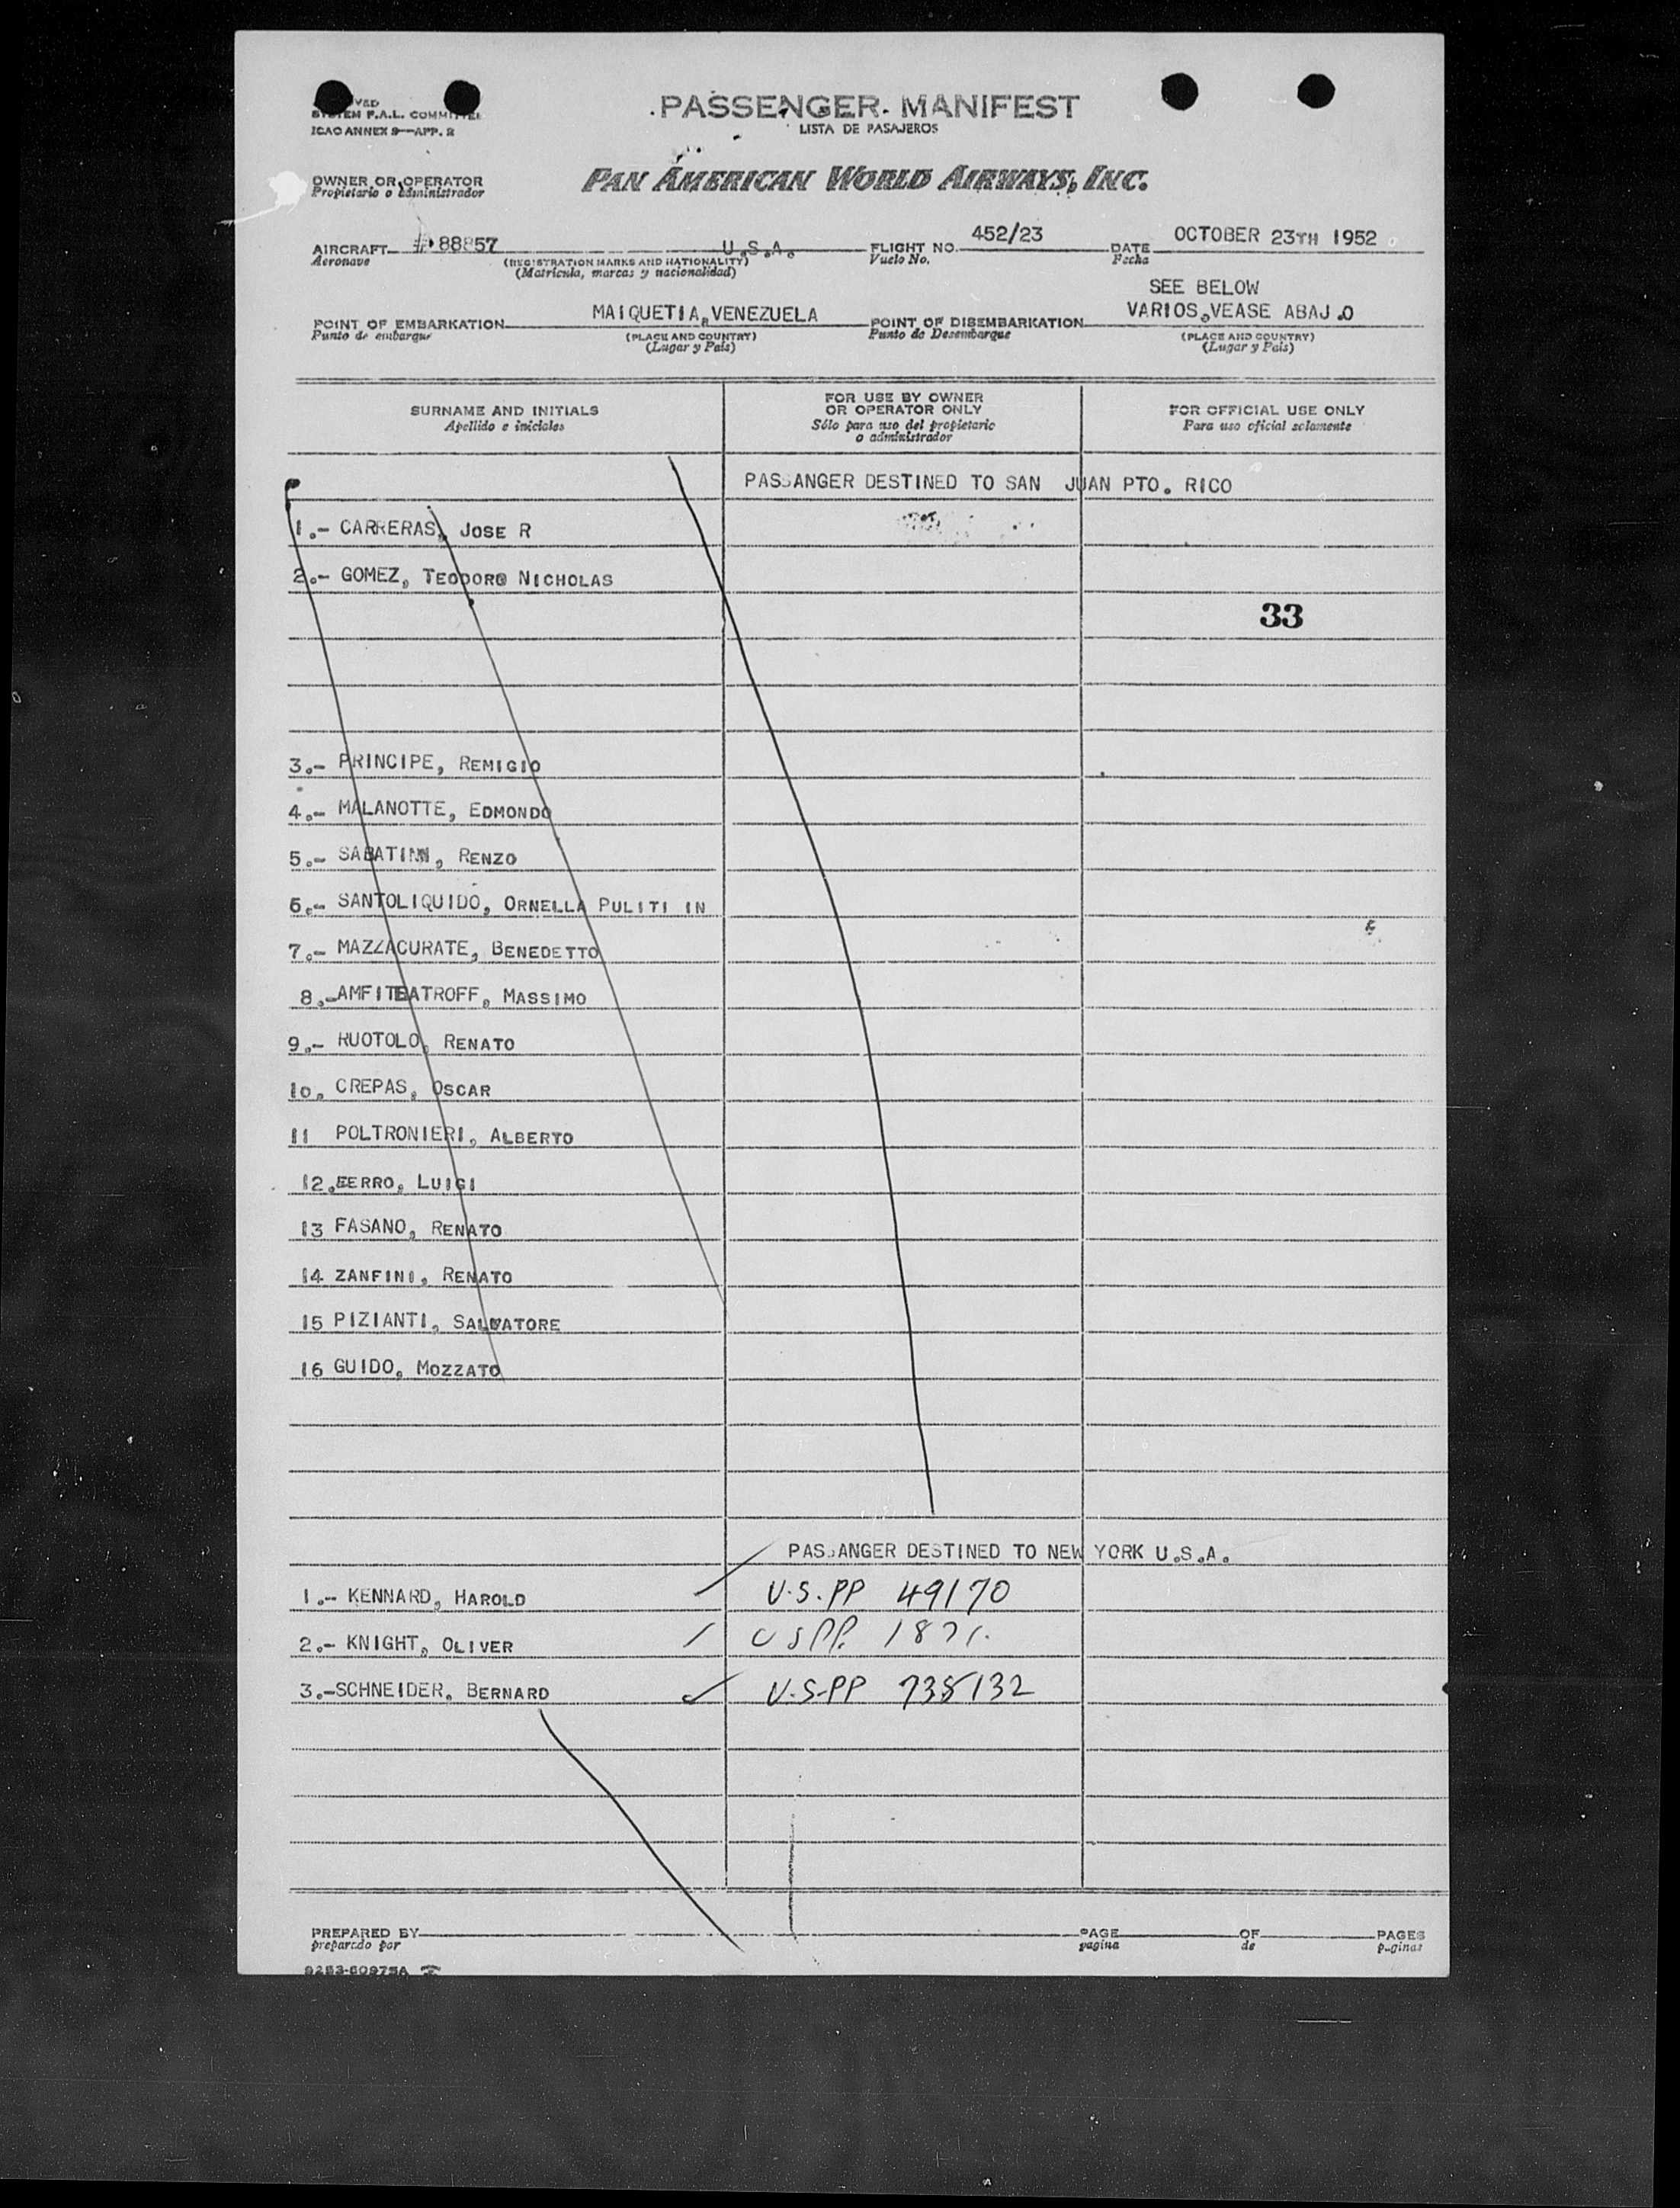 SYSTEM F.A.L. COMMITTEE
ICAO ANNEX 9—APP. 2
PASSENGER MANIFEST
LISTA DE PASAJEROS
OWNER OR OPERATOR
Propietario o administrador
PAN AMERICAN WORLD AIRWAYS, INC.
AIRCRAFT 88857 U.S.A. FLIGHT NO. 452/23 DATE OCTOBER 23TH 1952
Aeronave (REGISTRATION MARKS AND NATIONALITY) Vuelo No. Fecha
(Matrícula, marcas y nacionalidad)
SEE BELOW
POINT OF EMBARKATION MAIQUETIA, VENEZUELA POINT OF DISEMBARKATION VARIOS, VEASE ABAJ.O
Punto de embarque (PLACE AND COUNTRY) Punto de Desembarque (PLACE AND COUNTRY)
(Lugar y País) (Lugar y País)
SURNAME AND INITIALS
Apellido e iniciales
FOR USE BY OWNER
OR OPERATOR ONLY
Sólo para uso del propietario
o administrador
FOR OFFICIAL USE ONLY
Para uso oficial solamente
PASSANGER DESTINED TO SAN JUAN PTO. RICO
1.- CARRERAS, JOSE R
2.- GOMEZ, TEODORO NICHOLAS
33
3.- PRINCIPE, REMIGIO
4.- MALANOTTE, EDMONDO
5.- SABATINI, RENZO
6.- SANTOLIQUIDO, ORNELLA PULITI IN
7.- MAZZACURATE, BENEDETTO
8.-AMFITEATROFF, MASSIMO
9.- RUOTOLO, RENATO
10. CREPAS, OSCAR
11 POLTRONIERI, ALBERTO
12. FERRO, LUIGI
13 FASANO, RENATO
14 ZANFINI, RENATO
15 PIZIANTI, SALVATORE
16 GUIDO, MOZZATO
PASSANGER DESTINED TO NEW YORK U.S.A.
1.- KENNARD, HAROLD U.S.PP 49170
2.- KNIGHT, OLIVER USPP.
3.-SCHNEIDER, BERNARD U.S.PP 735132
PREPARED BY PAGE OF PAGES
preparado por pagina de paginas
9253-60975A